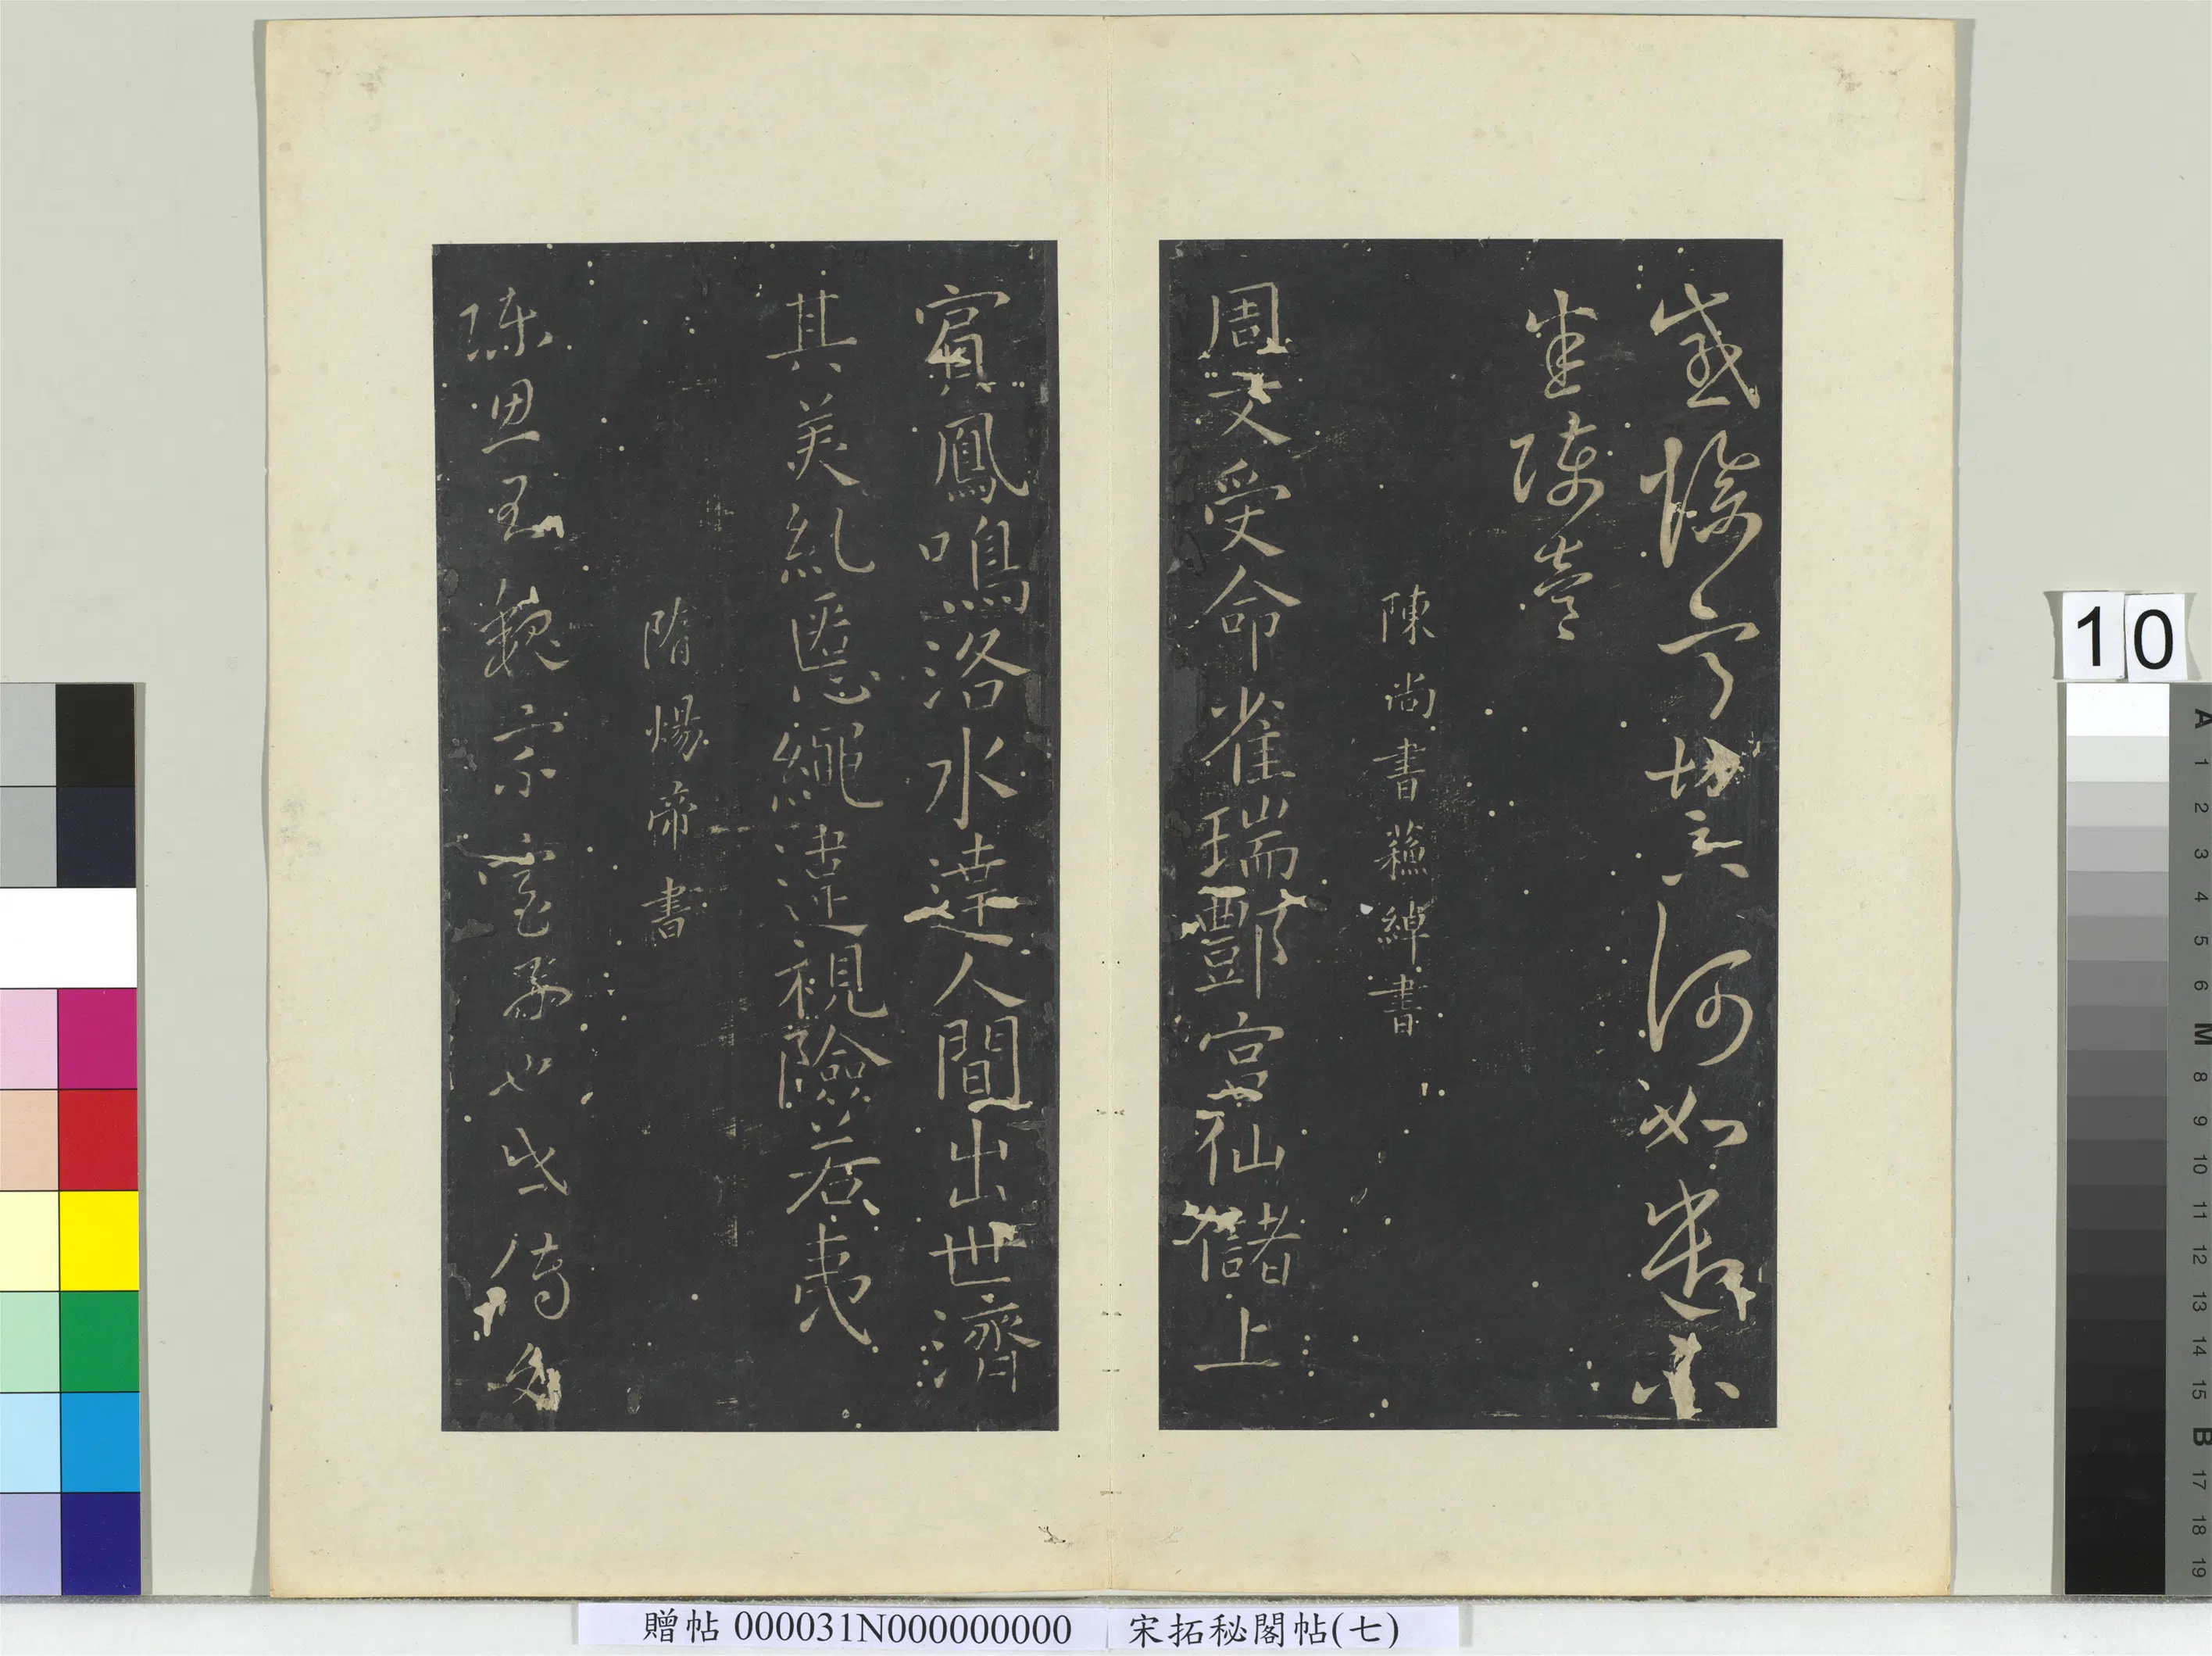 切念何如
陳尚書蘓綽書
周文受命雀瑞酆宮仙儲上
賓鳳鳴洛水達人間出世濟
其美糺慝繩違視險若夷
隋煬帝書
陳思王魏宗室子也世傳文
10
A 1 2 3 4 5 6 M 8 9 10 11 12 13 14 15 B 17 18 19
贈帖 000031N000000000 宋拓秘閣帖(七)